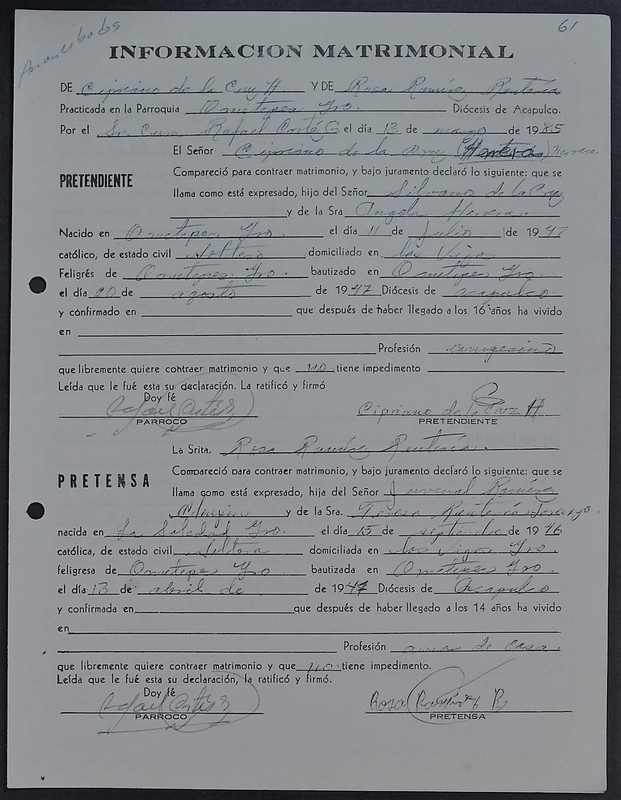 Amancebados
61
INFORMACION MATRIMONIAL
DE Cipriano de la Cruz H Y DE Rosa Ramírez Rentería
Practicada en la Parroquia Ometepec Gro. Diócesis de Acapulco.
Por el Sr. Cura Rafael Cortés G el día 13 de marzo de 1985
El Señor Cipriano de la Cruz Herrera
PRETENDIENTE
Compareció para contraer matrimonio, y bajo juramento declaró lo siguiente: que se
llama como está expresado, hijo del Señor Silvano de la Cruz
y de la Sra Angela Herrera
Nacido en Ometepec Gro. el día 11 de Julio de 1947
católico, de estado civil soltero domiciliado en los Vigas
Feligrés de Ometepec Gro. bautizado en Ometepec Gro.
el día 20 de agosto de 1947 Diócesis de acapulco
y confirmado en que después de haber llegado a los 16 años ha vivido
en
Profesión campesino
que libremente quiere contraer matrimonio y que no tiene impedimento
Leída que le fué esta su declaración. La ratificó y firmó
Doy fé
Rafael Cortés G Cipriano de la Cruz H.
PARROCO PRETENDIENTE
La Srita. Rosa Ramírez Rentería.
PRETENSA
Compareció para contraer matrimonio, y bajo juramento declaró lo siguiente: que se
llama como está expresado, hija del Señor Juvenal Ramírez
y de la Sra. Teresa Rentería
nacida en La Soledad Gro. el día 15 de septiembre de 1946
católica, de estado civil soltera domiciliada en los Vigas Gro.
feligresa de Ometepec Gro. bautizada en Ometepec Gro.
el día 13 de abril de de 1947 Diócesis de Acapulco
y confirmada en que después de haber llegado a los 14 años ha vivido
en
Profesión ama de casa
que libremente quiere contraer matrimonio y que no tiene impedimento.
Leída que le fué esta su declaración, la ratificó y firmó.
Doy fé
Rafael Cortés G Rosa Ramírez R
PARROCO PRETENSA